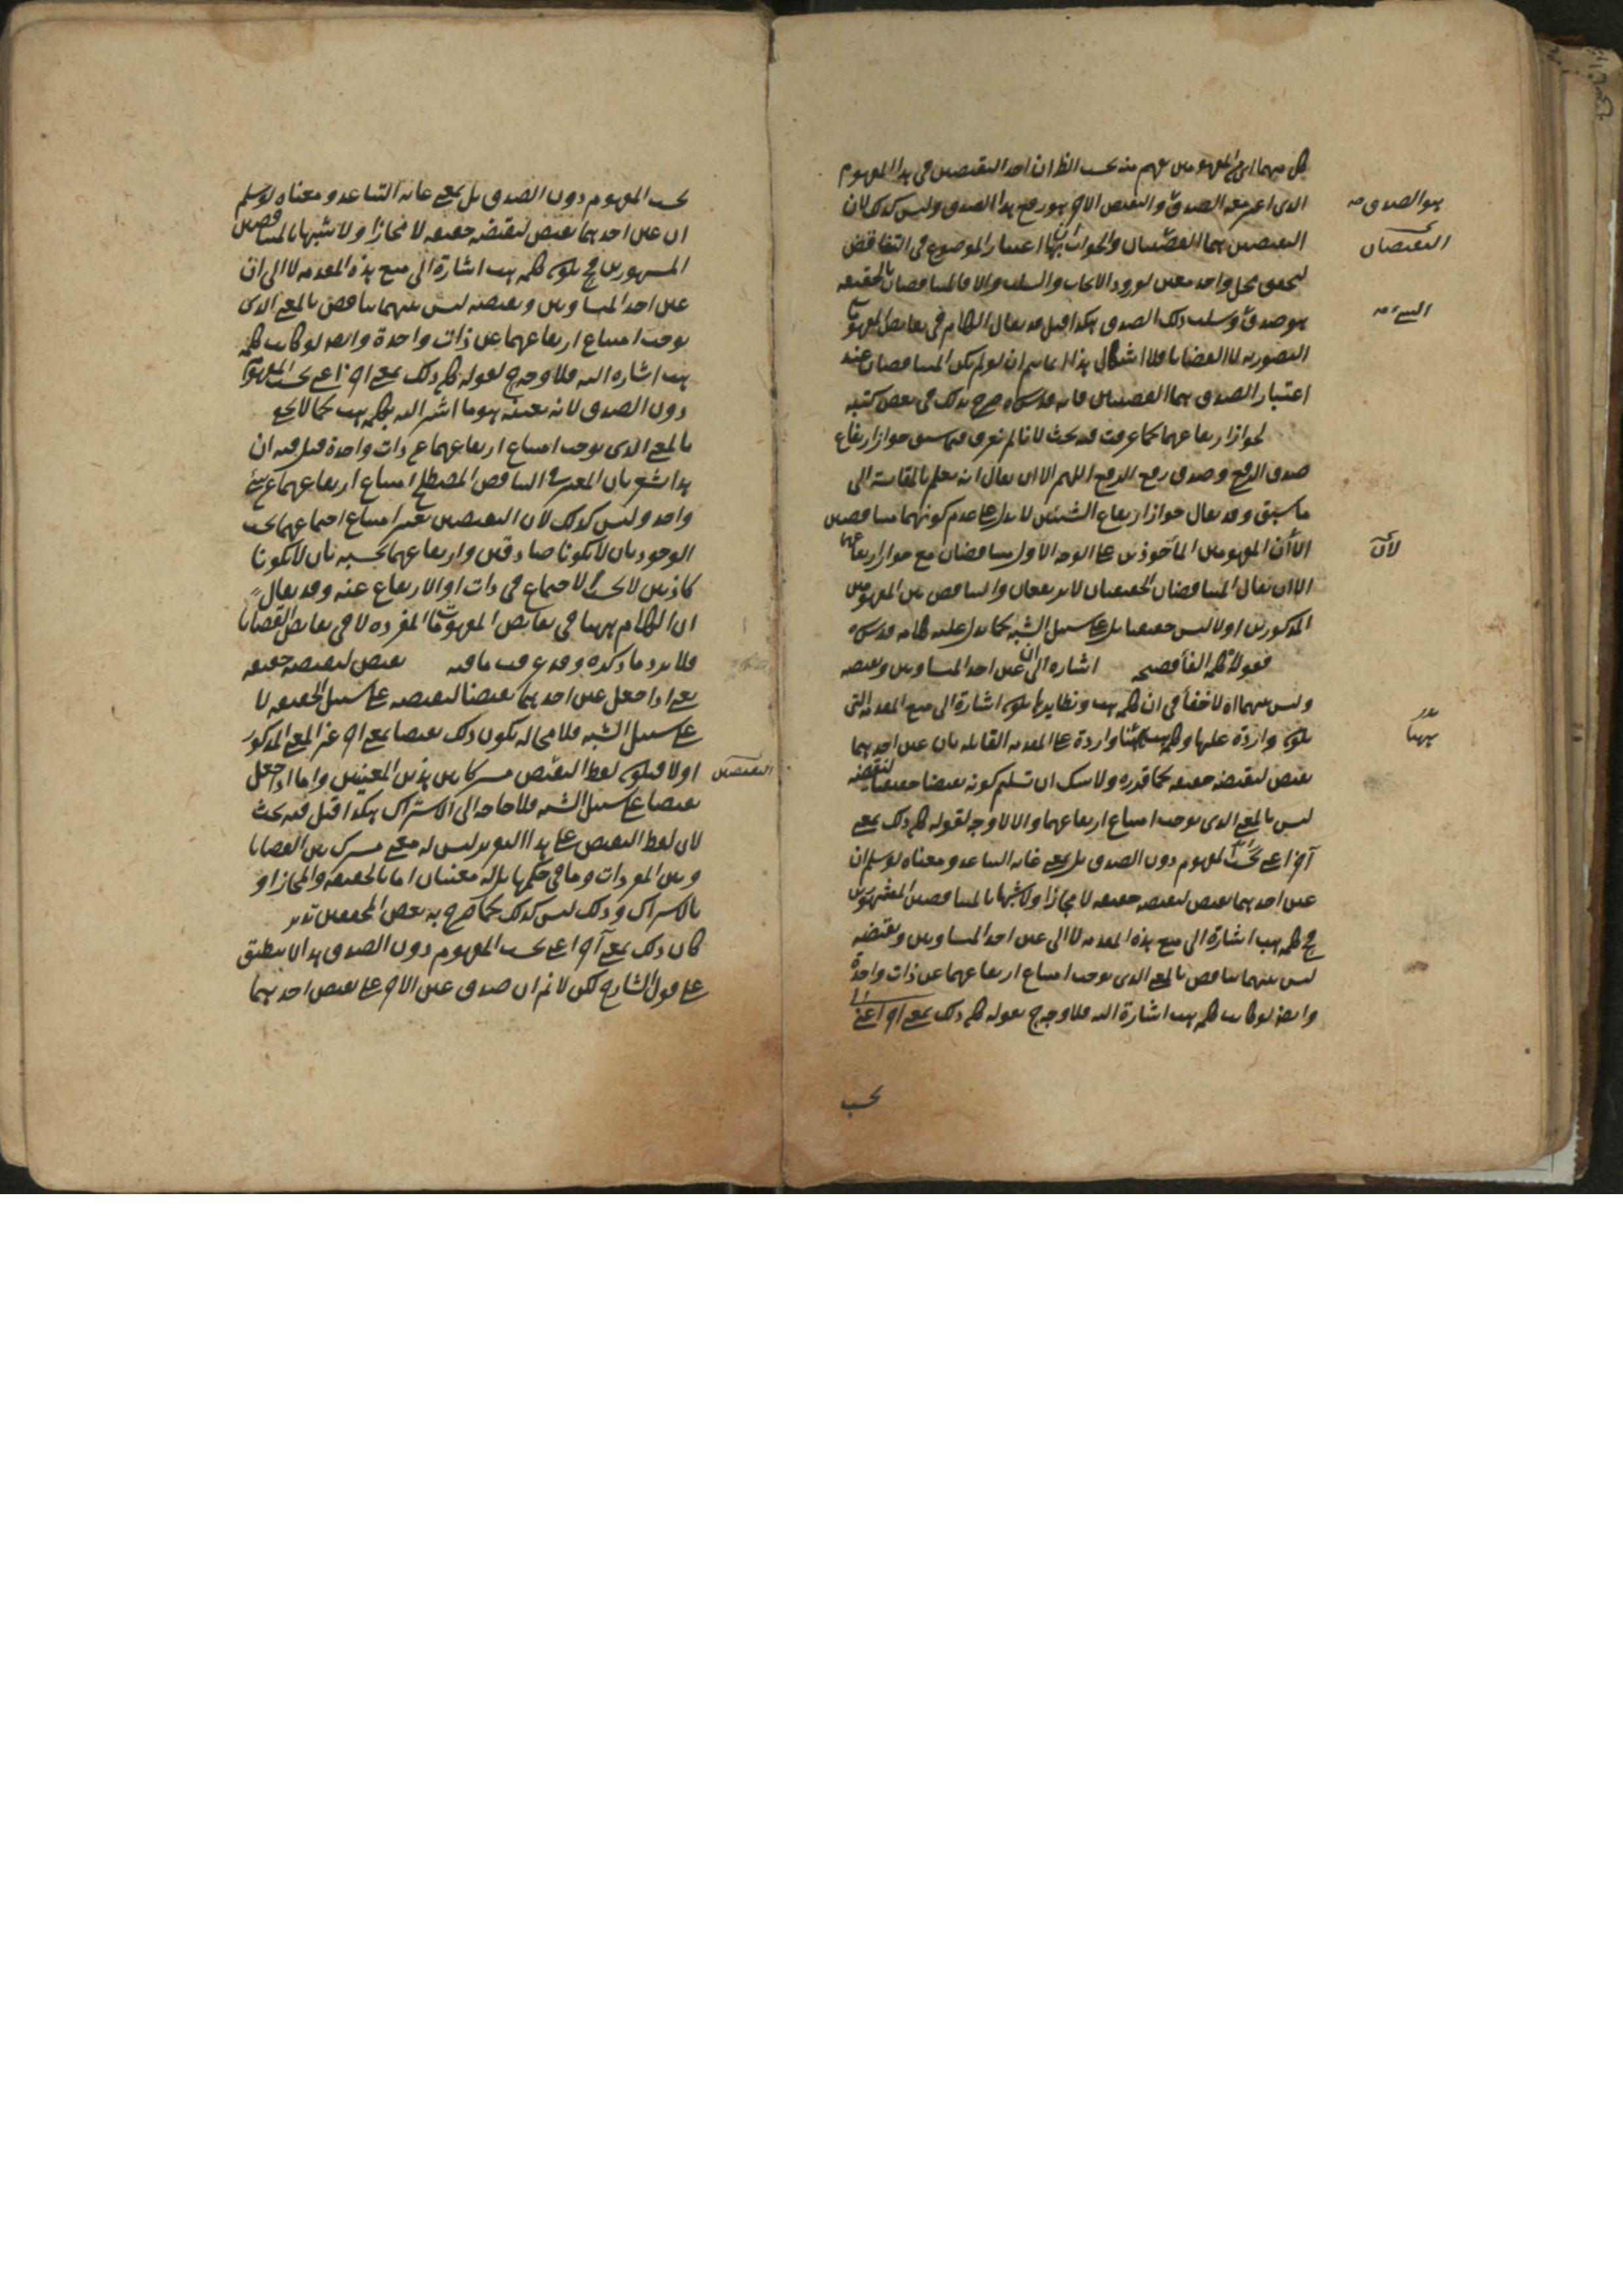 كل منهما اى المفهومين يفهم منه بحسب الظ ان احد النقيضين فى هذا المفهوم
الذى اعتبر معه الصدق والنقيض الاخر هو رفع هذا الصدق وليس كذلك لان
هو الصدق صح
النقيضين هما القضيتان والجواب اعتبار الموضوع فى التناقض
النقيضان
ليتحقق محل واحد معين لورود الايجاب والسلب والا فالمتناقضان بالحقيقة
هو صدق وسلب ذلك الصدق هكذا قيل قد يقال الكلام فى نقايض المفهومات
التصورية لا القضايا فلا اشكال هذا انما يتم ان لو لم يكن المتناقضان عند
اعتبار الصدق هما القضيتان فانه قدس سره صرح بذلك فى بعض كتبه
لجواز ارتفاعهما كما عرفت فيه بحث لانا لم نعرف فيما سبق جواز ارتفاع
صدق الرفع وصدق رفع الرفع اللهم الا ان يقال انه يعلم بالمقايسة الى
ما سبق وقد يقال جواز ارتفاع الشيئين لا يدل على عدم كونهما متناقضين
الا ان المفهومين المأخوذين على الوجه الاول متناقضان مع جواز ارتفاعهما
لان
الا ان يقال المتناقضان الحقيقيان لا يرتفعان والتناقض بين المفهومين
المذكورين اولا ليس حقيقيا بل على سبيل الشبه كما يدل عليه كلامه قدس سره
فقولا كلمة الفأ فصيحة اشارة الى ان عين احد المتساويين ونقيضه
وليس بينهما اه لا خفأ فى ان كلمة هب ونظايرها يكون اشارة الى منع المقدمة التى
يكون واردة عليها وكلمة هب هنا واردة على المقدمة القايلة بان عين احدهما
ههنا
نقيض لنقيضه حقيقة كما قدره ولا شك ان تسليم كونه نقيضا حقيقيا لنقيضه
ليس بالمعنى الذى يوجب امتناع ارتفاعهما والا لا وجه لقوله كان ذلك بمعنى
آخر اعنى بحسب المفهوم دون الصدق بل بمعنى غاية التباعد ومعناه لو سلم ان
عين احدهما نقيض لنقيضه حقيقة لا مجازا ولا شبها بالمتناقضين المشهورين
فح كلمة هب اشارة الى منع هذه المقدمة لا الى عين احد المتساويين ونقيضه
ليس بينهما تناقض بالمعنى الذى يوجب امتناع ارتفاعهما عن ذات واحدة
وايضا لو كانت كلمة هب اشارة اليه فلا وجه ح لقوله كان ذلك بمعنى اخر اعنى
بحسب
بحسب المفهوم دون الصدق بل بمعنى غاية التباعد ومعناه لو سلم
ان عين احدهما نقيض لنقيضه حقيقة لا مجازا ولا شبها بالمتناقضين
المشهورين فح يكون كلمة هب اشارة الى منع هذه المقدمة لا الى ان
عين احد المتساويين ونقيضه ليس بينهما تناقض بالمعنى الذى
يوجب امتناع ارتفاعهما عن ذات واحدة وايضا لو كانت كلمة
هب اشارة اليه فلا وجه ح لقوله كان ذلك بمعنى اخر اعنى بحسب المفهوم
دون الصدق لانه بعينه هو ما اشير اليه بكلمة هب كما لا يخفى
بالمعنى الذى يوجب امتناع ارتفاعهما عن ذات واحدة قيل فيه ان
هذا يشعر بان المعتبر فى التناقض المصطلح امتناع ارتفاعهما عن شئ
واحد وليس كذلك لان النقيضين يعتبر امتناع اجتماعهما بحسب
الوجود بان لا يكونا صادقين وارتفاعهما بحسبه بان لا يكونا
كاذبين لا بحسب الاجتماع فى ذات او الارتفاع عنه وقد يقال
ان الكلام ههنا فى نقايض المفهومات المفردة لا فى نقايض القضايا
فلا يرد ما ذكره وقد عرفت ما فيه نقيض لنقيضه حقيقة
يعنى اذا جعل عين احدهما نقيضا لنقيضه على سبيل الحقيقة لا
على سبيل الشبه فلا محالة يكون ذلك نقيضا بمعنى اخر غير المعنى المذكور
اولا فيكون لفظ النقيض مشتركا بين هذين المعنيين واما اذا جعل
النقيضين
نقيضا على سبيل الشبه فلا حاجة الى الاشتراك هكذا قيل فيه بحث
لان لفظ النقيض على هذا التقدير ليس له معنى مشترك بين القضايا
وبين المفردات وما فى حكمها بل له معنيان اما بالحقيقة والمجاز او
بالاشتراك وذلك ليس كذلك كما صرح به بعض المحققين تدبر
كان ذلك بمعنى آخر اعنى بحسب المفهوم دون الصدق هذا لا ينطبق
على قول الشارح لكن لا نم ان صدق عين الاخر على نقيض احدهما